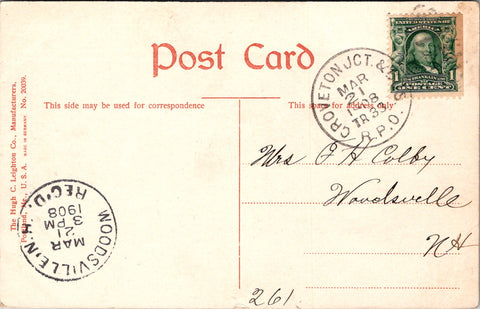 Post Card
This side may be used for correspondence
This space for address only
The Hugh C. Leighton Co., Manufacturers.
Portland, Me., U. S. A. MADE IN GERMANY No. 20039.
1 FRANKLIN 1
POSTAGE
ONE CENT
GROVETON JCT. &
MAR
21
1908
TR 33
R.P.O.
Mrs F H Colby
Woodsville
NH
WOODSVILLE, N.H.
MAR
21
3 PM
1908
REC'D.
261